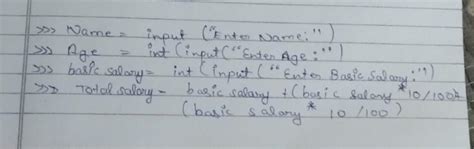 >>> Name = input ("Enter Name:")
>>> Age = int (input ("Enter Age:")
>>> basic salary = int (input ("Enter Basic Salary:")
>>> Total salary = basic salary + (basic salary * 10/100+
(basic salary * 10/100)